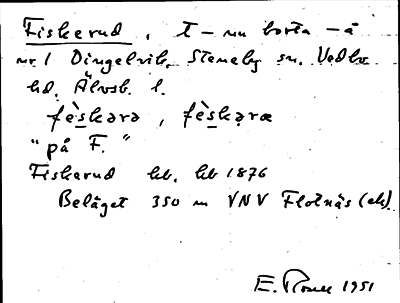 Fiskerud, t – nu borta – å
nr. 1 Dingelvik, Steneby sn. Vedbo
hd. Älvsb. l.
fèskərə, fèskərœ
"på F."
Fiskerud hb. hb 1876
Beläget 350 m VNV Flotnäs (ek).
E. 1951